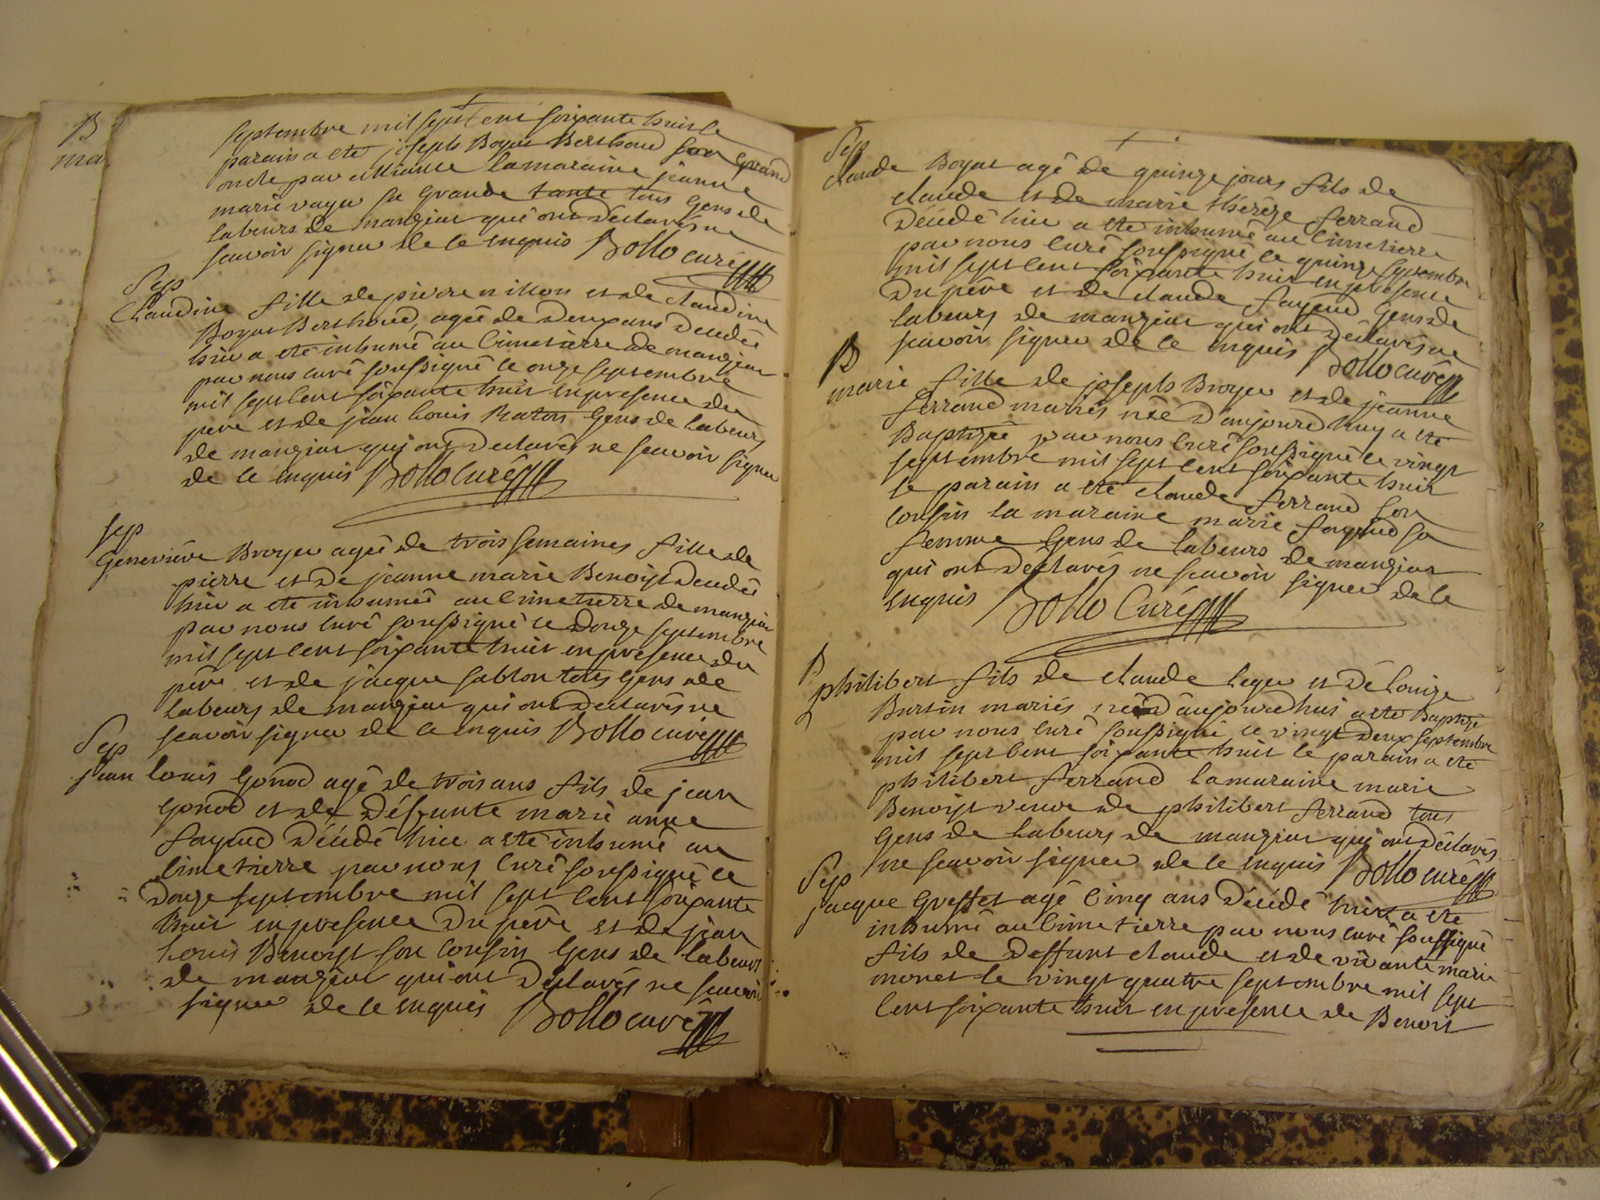 B
ma
septembre mil sept cent soixante huit le
parain a eté joseph Boyat Berthoud son grand
oncle par alliance la maraine jeanne
marie vayer sa grande tante tous gens de
labeurs de manziat qui ont déclarés ne
scavoir signer de ce enquis Bollo curé
Sep
Claudine fille de pierre nillon et de claudine
Boyat Berthoud, agée de deux ans decedée
hier a eté inhumé au Cimetierre de manziat
par nous curé soussigné le onze septembre
mil sept cent soixante huit en presence du
pere et de jean louis Ratton gens de labeurs
de manziat qui ont declarés ne scavoir signer
de ce enquis Bollo curé
sep
Geneviéve Broyer agée de trois semaines fille de
pierre et de jeanne marie Benoist decedée
hier a eté inhumée au Cimetierre de manziat
par nous curé soussigné le douze septembre
mil sept cent soixante huit en presence du
pere et de jacque sablon tous gens de
labeurs de manziat qui ont declarés ne
scavoir signer de ce enquis Bollo curé
Sep
jean louis Gonod agé de trois ans fils de jean
Gonod et de déffunte marie anne
fayeud décédé hier a eté inhumé au
Cimetierre par nous curé soussigné le
douze septembre mil sept cent soixante
huit en presence du pere et de jean
louis Benoist son cousin gens de labeurs
de manziat qui ont déclarés ne scavoir
signer de ce enquis Bollo curé
Sep
claude Boyat agé de quinze jours fils de
claude et de marie thérèze ferrand
decedé hier a eté inhumé au Cimetierre
par nous curé soussigné le quinze septembre
mil sept cent soixante huit en presence
du pere et de claude fayeud gens de
labeurs de manziat qui ont declarés ne
scavoir signer de ce enquis Bollo curé
B
marie fille de joseph Broyer et de jeanne
ferrand mariés née d'aujourd'huy a eté
Baptizée par nous curé soussigné le vingt
septembre mil sept cent soixante huit
le parain a eté claude ferrand son
cousin la maraine marie fayeud sa
femme gens de labeurs de manziat
qui ont déclarés ne scavoir signer de ce
enquis Bollo Curé
B
philibert fils de claude leger et de louize
Burtin mariés né d'aujourd'hui a eté Baptizé
par nous curé soussigné le vingt deux septembre
mil sept cent soixante huit le parain a eté
philibert ferrand la maraine marie
Benoist veuve de philibert ferrand tous
gens de labeurs de manziat qui ont déclarés
ne scavoir signer de ce enquis Bollo curé
Sep
jacque Greffet agé Cinq ans décédé hier a eté
inhumé au Cimetierre par nous curé soussigné
fils de deffunt claude et de vivante marie
monet le vingt quatre septembre mil sept
cent soixante huit en presence de Benoit